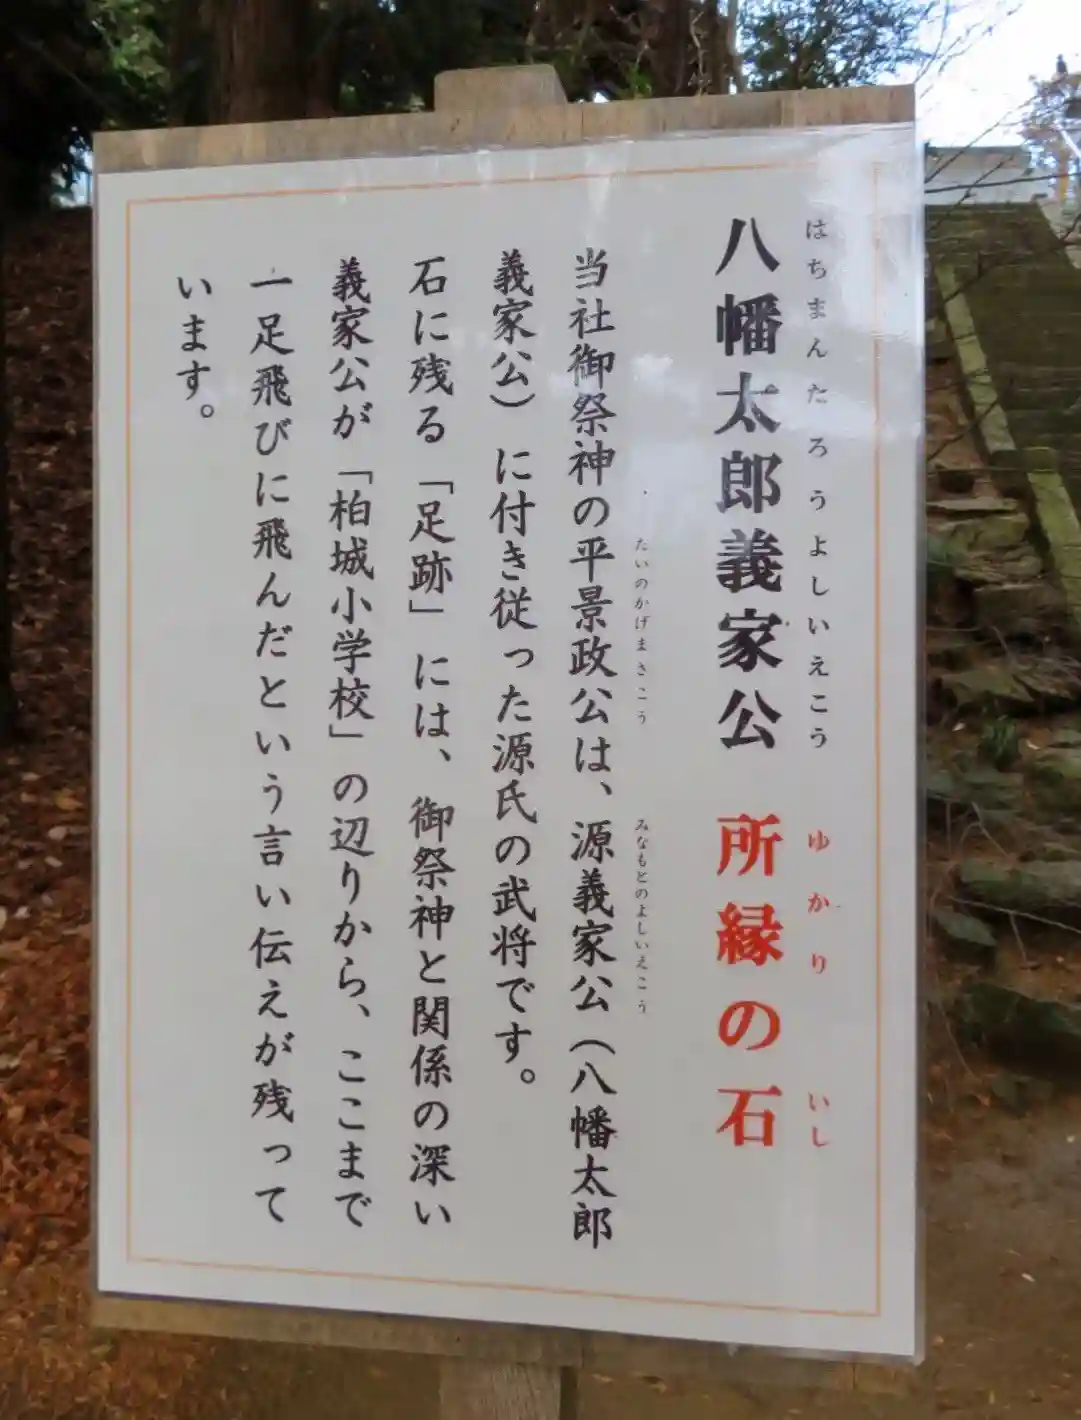 はちまんたろうよしいえこう ゆかり いし
八幡太郎義家公 所縁の石
たいのかげまさこう みなもとのよしいえこう
当社御祭神の平景政公は、源義家公(八幡太郎
義家公)に付き従った源氏の武将です。
石に残る「足跡」には、御祭神と関係の深い
義家公が「柏城小学校」の辺りから、ここまで
一足飛びに飛んだという言い伝えが残って
います。